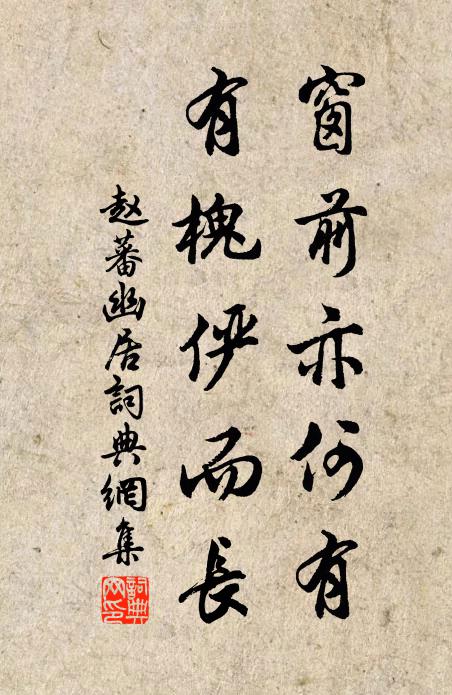 窗前亦何有
有槐伻而長
赵蕃幽居詞典網集
詞典网印